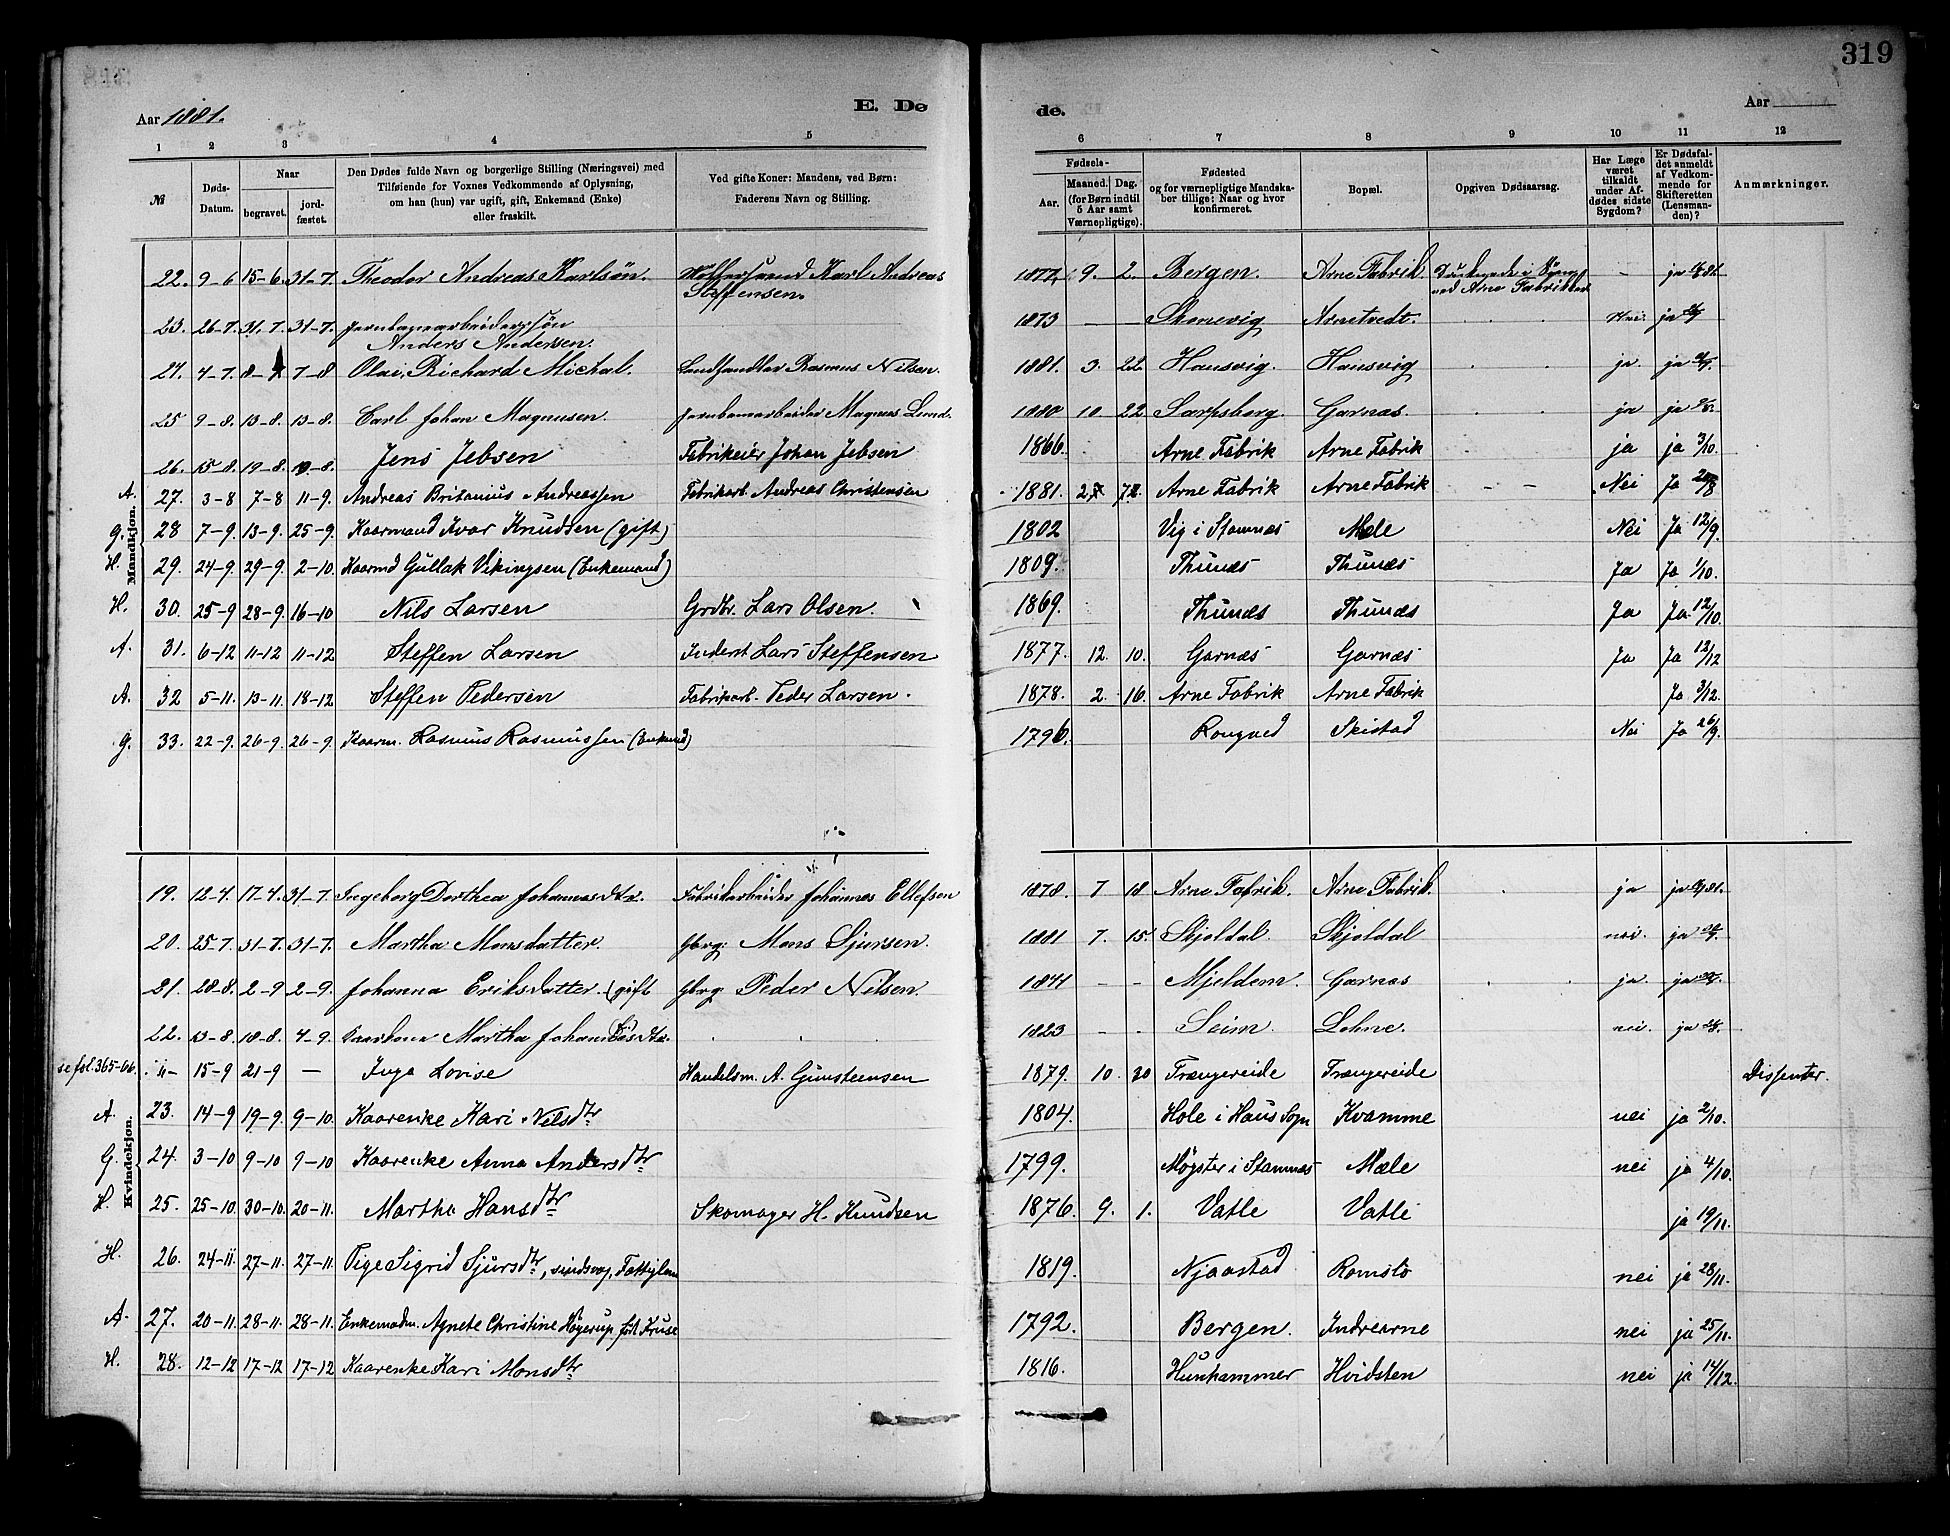 319
Aar 1881.
E. Dø
de.
Aar
1 2 3 4 5 6 7 8 9 10 11 12
№
Døds-Datum.
Naar
begravet.
jord-fæstet.
Den Dødes fulde Navn og borgerlige Stilling (Næringsvei) med
Tilføiende for Voxnes Vedkommende af Oplysning,
om han (hun) var ugift, gift, Enkemand (Enke)
eller fraskilt.
Ved gifte Koner: Mandens, ved Børn:
Faderens Navn og Stilling.
Fødsels-
Aar.
Maaned. Dag.
(for Børn indtil
5 Aar samt
Værnepligtige).
Fødested
og for værnepligtige Mandska-
ber tillige: Naar og hvor
konfirmeret.
Bopæl.
Opgiven Dødsaarsag.
Har Læge
været
tilkaldt
under Af-
dødes sidste
Sygdom?
Er Dødsfal-
det anmeldt
af Vedkom-
mende for
Skifteretten
(Lensman-
den)?
Anmærkninger.
Mandkjøn.
22. 9-6 15-6. 31-7. Theodor Andreas Karlsøn. Karl Andreas Steffensen. 1877. 9. 2. Bergen. Arne Fabrik. ved Arne Fabrikker - ja
23. 26-7. 31-7. 31-7. Jernbanearbeidersøn Anders Andersen. 1873 - - Skonevig Arnetvedt. nei ja
24. 4-7. 7-8 Olai Richard Michal. Landhandler Rasmus Nilsen. 1881. 3. 22 Hausvig. Hausvig ja. ja
25 9-8. 13-8. 13-8. Carl Johan Magnusen. Jernbanearbeider Magnus Lund. 1880 10. 22 Sarpsborg. Garnæs. ja ja
26. 15-8. 19-8. 19-8. Jens Jebsen Fabrikeier Johan Jebsen 1866. Arne Fabrik Arne Fabrik ja ja 3/10.
A. 27. 3-8 7-8 11-9. Andreas Britanius Andreassen Fabrikarb. Andreas Christensen 1881. Arne Fabrik Arne Fabrik - - Nei Ja
G. 28 7-9. 13-9. 25-9. Kaarmand Ivar Knudsen (gift) 1802 Vig i Stamnæs Mæle Nei Ja 12/9.
H. 29. 24-9. 29-9. 2-10. Kaarmd Gullak Vikingsen (Enkemand) 1809. Thunæs Thunæs Ja Ja 1/10.
H. 30. 25-9 28-9. 16-10 Nils Larsen Grdbr. Lars Olsen. 1869. Thunæs Thunæs Ja Ja 12/10.
A. 31. 6-12 11-12 11-12 Steffen Larsen Inderst Lars Steffensen 1877. 12. 10. Garnæs Garnæs Ja Ja 12/12
A. 32 5-11. 13-11. 18-12 Steffen Pedersen Fabrikarb. Peder Larsen. 1878. 2. 16. Arne Fabrik Arne Fabrik Ja 3/12.
G. 33. 22-9. 26-9. 26-9. Kaarm. Rasmus Rasmussen (Enkemd) 1796. Rongved Skistad Nei Ja 26/9.
Kvindekjøn.
19. 12-4. 17-4. 31-7. Ingeborg Dorthea Johannesdtr. Fabrikarbeider Johannes Ellefsen 1878. 7 18 Arne Fabrik. Arne Fabrik. ja ja
20. 25-7. 31-7. 31-7. Martha Monsdatter. Gbrg. Mons Sjursen. 1881 7. 15. Skjoldal. Skjoldal nei. ja
21. 28-8. 2-9 2-9. Johanna Eriksdatter. (gift Gbrg. Peder Nilsen. 1844 - - Mjeldem. Garnæs ja. ja
22. 13-8. 18-8. 4-9. Kaarkone Martha Johannesdtr. 1823 - - Seim. Lohne. nei. ja
se fol. 365-66. " 15-9 21-9 - Inga Lovise Handelsm. A. Gunsteensen 1879. 10 30 Trængereide Trængereide Dissenter.
A. 23. 14-9 19-9. 9-10. Kaarenke Kari Nilsdtr 1804. Hole i Haus Sogn Kvamme nei ja 2/10.
G. 24. 3-10 9-10 9-10 Kaarenke Anna Andersdtr 1799. Møgster i Stamnæs Mæle nei ja 4/10.
H. 25. 25-10. 30-10. 20-11. Martha Hansdtr Skomager H. Knudsen 1876. 9. 1. Vatle Vatle ja 19/11.
H. 26. 24-11 27-11. 27-11. Pige Sigrid Sjursdtr, sindssvag, Fattiglem 1819. Njaastad Romslo nei ja 28/11.
A. 27. 20-11. 28-11. 28-11. Enkemadm. Agnete Christine Høyerup, født Kruse 1792. Bergen. Indrearne nei ja 25/11.
H. 28. 12-12 17-12 17-12 Kaarenke Kari Monsdtr 1816. Hunhammer Hvidsten nei ja 14/12.